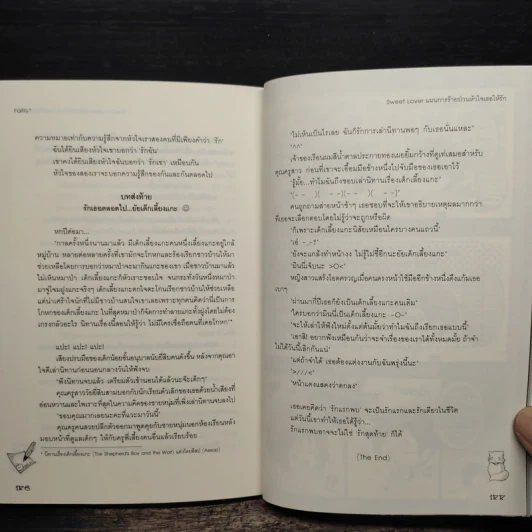 ความหมายเท่ากับความรู้สึกจากหัวใจเราสองคนที่มีเพียงคำว่า 'รัก'
ฉันได้ยินเสียงหัวใจเขาบอกว่า 'รักฉัน'
เขาคงได้ยินเสียงหัวใจฉันบอกว่า 'รักเขา' เหมือนกัน
หัวใจของสองเราจะบอกความรู้สึกของกันและกันตลอดไป
บทส่งท้าย
รักเธอตลอดไป...ยัยเด็กเลี้ยงแกะ
หกปีต่อมา...
"กาลครั้งหนึ่งนานมาแล้ว มีเด็กเลี้ยงแกะคนหนึ่งเลี้ยงแกะอยู่ใกล้
หมู่บ้าน หลายต่อหลายครั้งที่เขามักจะโกหกและร้องเรียกชาวบ้านให้มา
ช่วยเหลือโดยการบอกว่าหมาป่าจะมากินแกะของเขา เมื่อชาวบ้านมาแล้ว
ไม่เห็นหมาป่า เด็กเลี้ยงแกะก็หัวเราะชอบใจ จนกระทั่งวันหนึ่งหมาป่า
มาจู่โจมฝูงแกะจริงๆ เด็กเลี้ยงแกะตกใจตะโกนเรียกชาวบ้านให้ช่วยเหลือ
แต่น่าเศร้าใจนักที่ไม่มีชาวบ้านสนใจเขาเลยเพราะทุกคนคิดว่านี่เป็นการ
โกหกของเด็กเลี้ยงแกะ ในที่สุดหมาป่าก็จัดการทำลายแกะทั้งฝูงโดยไม่ต้อง
เกรงกลัวอะไร นิทานเรื่องนี้สอนให้รู้ว่า ไม่มีใครเชื่อถือคนที่เคยโกหก"*
แปะ! แปะ! แปะ!
เสียงปรบมือของเด็กน้อยชั้นอนุบาลนับยี่สิบคนดังขึ้น หลังจากคุณเอา
ใจตีเล่านิทานก่อนนอนกลางวันให้ฟังจบ
"ฟังนิทานจบแล้ว เตรียมตัวเข้านอนได้แล้วนะจ๊ะเด็กๆ"
"ขอบคุณมากเลยนะคะที่แวะมาวันนี้"
* นิทานเรื่องเด็กเลี้ยงแกะ (The Shepherd's Boy and the Wolf) แต่งโดยอีสป (Aesop)
๒๗๖
Sweet Lover แผนการร้ายป่วนหัวใจเธอให้รัก
"ไม่เห็นเป็นไรเลย ฉันก็รักการเล่านิทานพอๆ กับเธอนั่นแหละ"
"^^"
"รู้มั้ย...ทำไมฉันถึงชอบเล่านิทานเรื่องเด็กเลี้ยงแกะ"
คนถูกถามส่ายหน้าช้าๆ เธอชอบที่จะให้เขาอธิบายเหตุผลมากกว่า
ที่เธอจะเลือกตอบโดยไม่รู้ว่าจะถูกหรือผิด
"ก็เพราะเด็กเลี้ยงแกะนิสัยเหมือนใครบางคนแถวนี้"
"ยังจะแกล้งทำหน้างง ไม่รู้ไม่ชี้อีกนะยัยเด็กเลี้ยงแกะ"
"มินนี่เจ็บนะ >O<"
หญิงสาวแสร้งโอดครวญเมื่อคนตรงหน้าใช้มืออีกข้างหนึ่งดึงแก้มเธอ
เบาๆ
"ผ่านมากี่ปีเธอก็ยังเป็นเด็กเลี้ยงแกะคนเดิม"
"ใครบอกว่ามินนี่เป็นเด็กเลี้ยงแกะ -O-"
"แต่ถ้าจำได้ เธอต้องแต่งงานกับฉันพรุ่งนี้นะ"
">///<"
"หน้าแดงแสดงว่าตกลง"
เธอเคยคิดว่า 'รักแรกพบ' จะเป็นรักแรกและรักเดียวในชีวิต
แต่วันนี้เขาทำให้เธอได้รู้ว่า...
รักแรกพบอาจจะไม่ใช่ 'รักสุดท้าย' ก็ได้
(The End)
๒๗๗